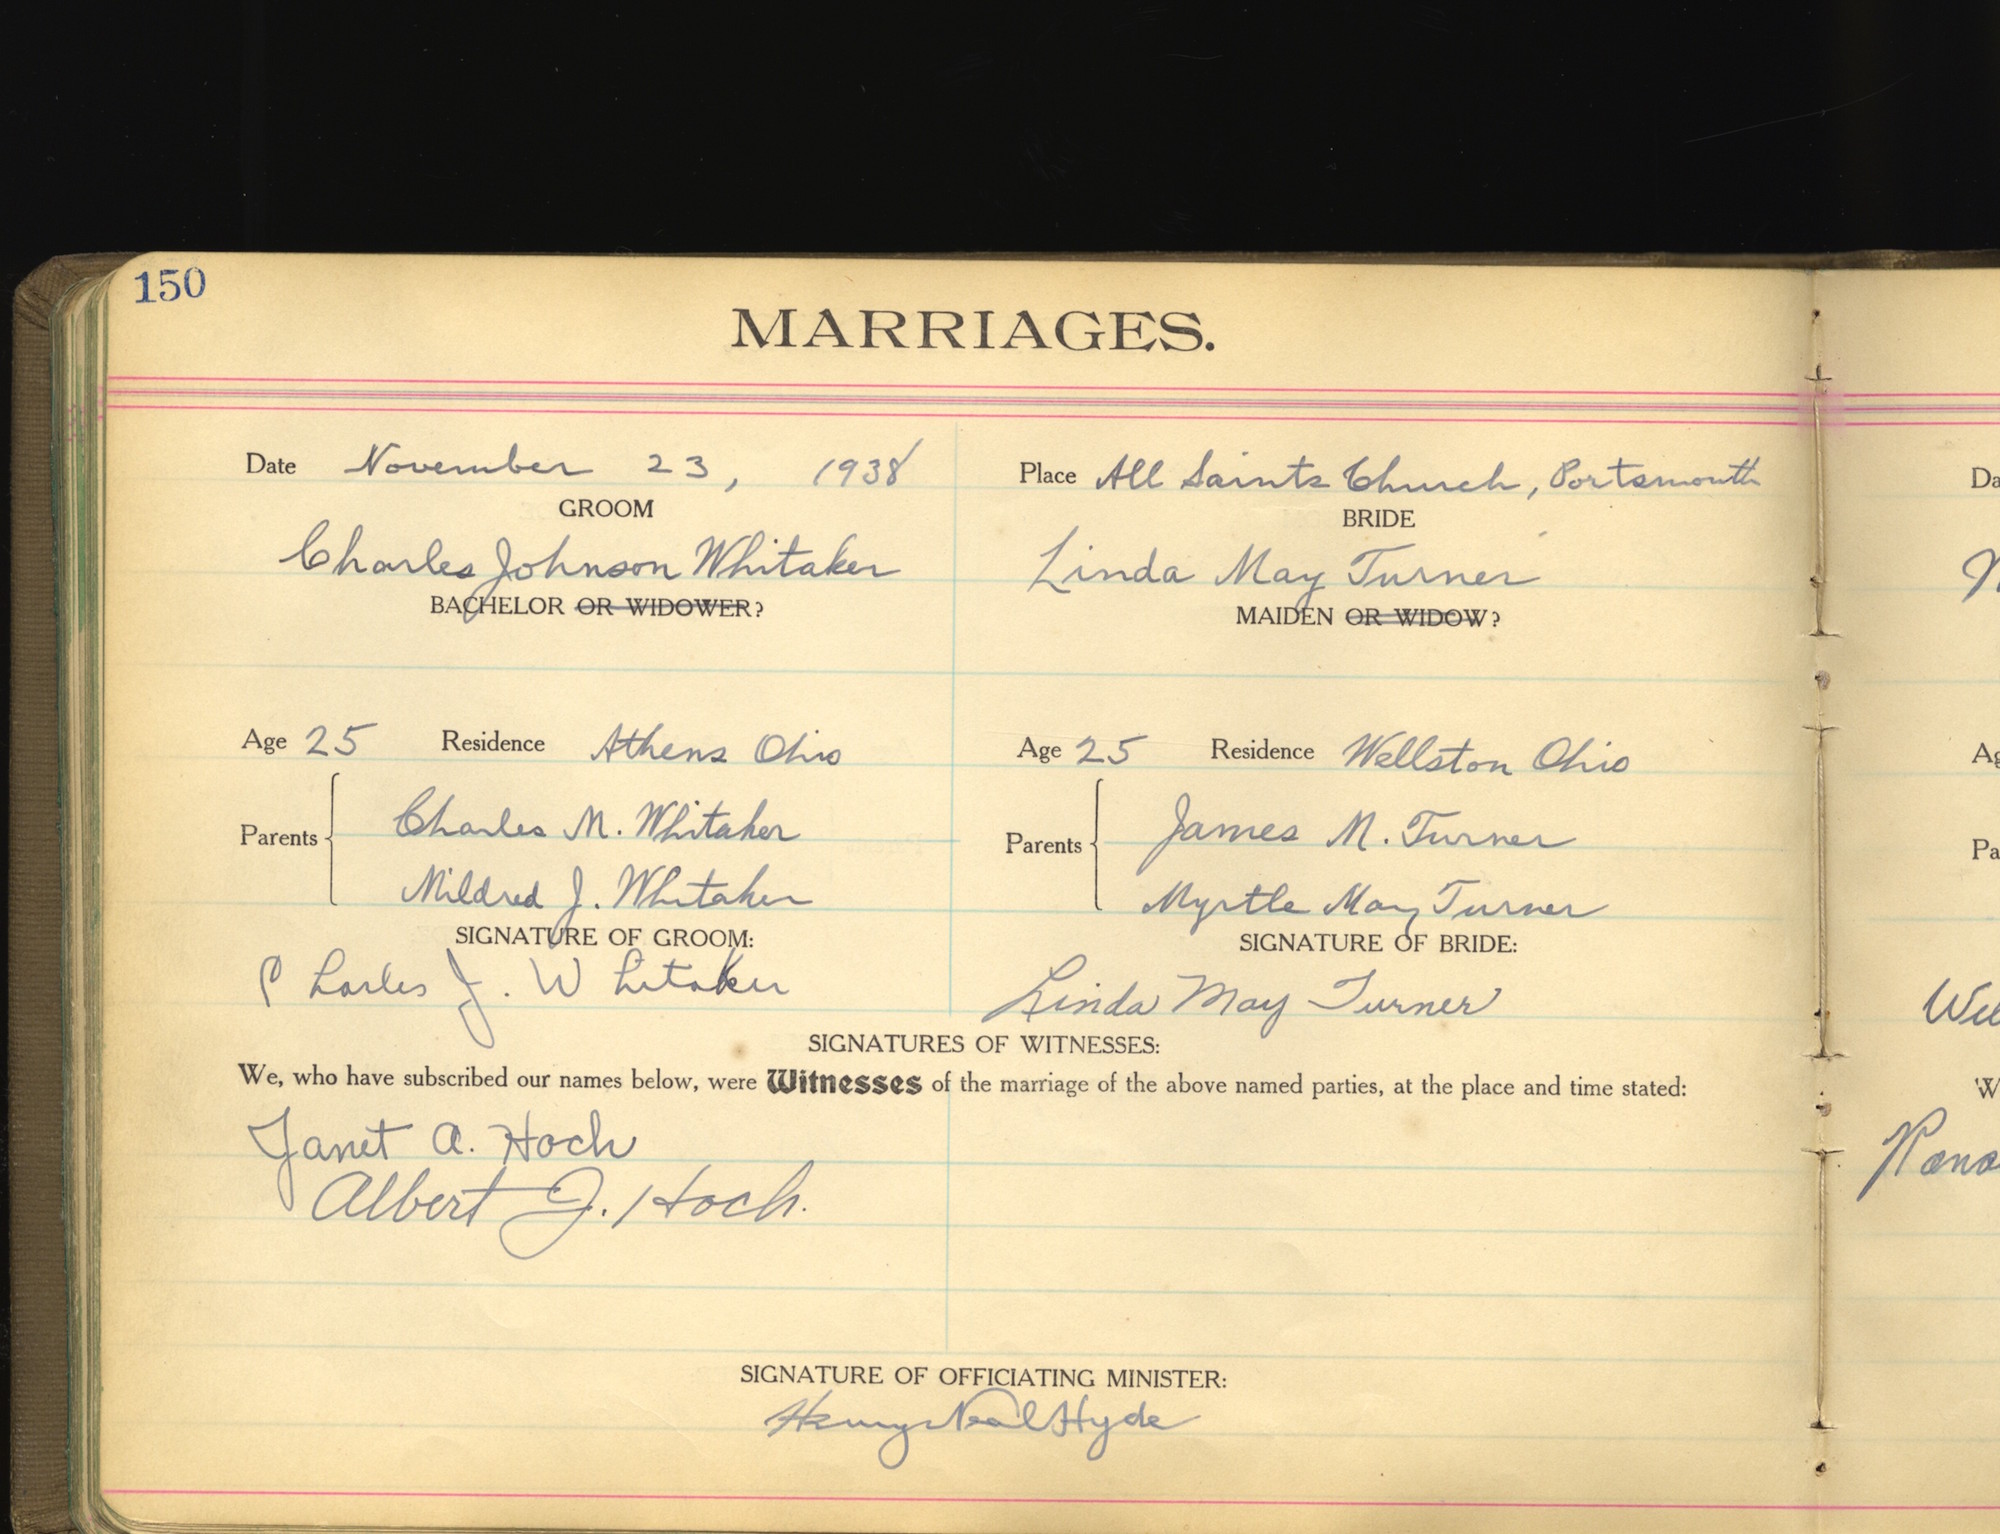 150
MARRIAGES.
Date November 23, 1938 Place All Saints Church, Portsmouth
GROOM BRIDE
Charles Johnson Whitaker Linda May Turner
BACHELOR OR WIDOWER? MAIDEN OR WIDOW?
Age 25 Residence Athens Ohio Age 25 Residence Wellston Ohio
Parents Charles M. Whitaker Parents James M. Turner
Mildred J. Whitaker Myrtle May Turner
SIGNATURE OF GROOM: SIGNATURE OF BRIDE:
Charles J. Whitaker Linda May Turner
SIGNATURES OF WITNESSES:
We, who have subscribed our names below, were Witnesses of the marriage of the above named parties, at the place and time stated:
Janet A. Hoch
Albert J. Hoch.
SIGNATURE OF OFFICIATING MINISTER:
Henry Neal Hyde